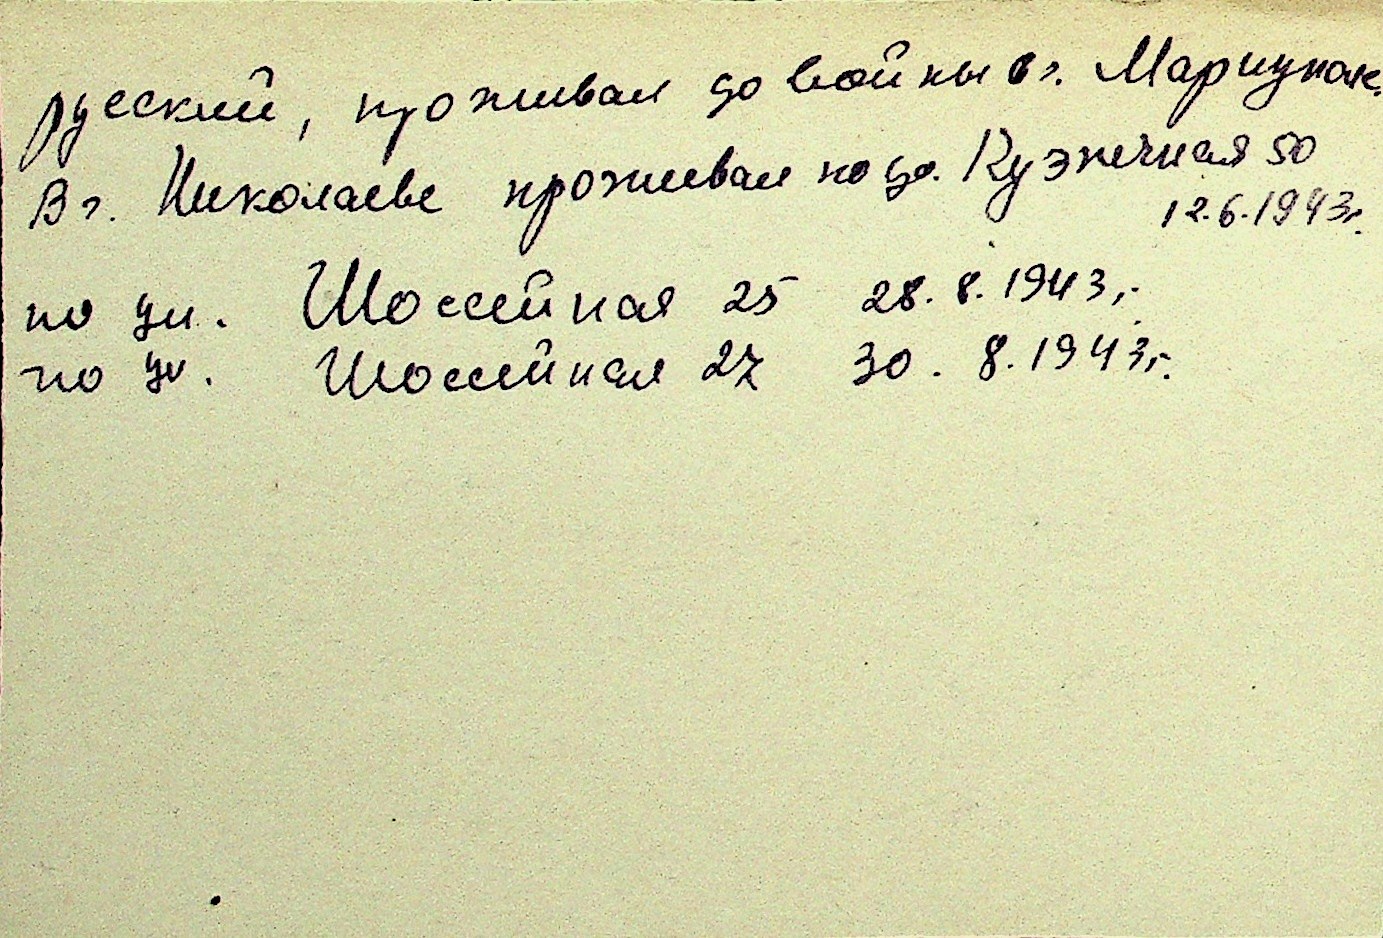 русский, проживал до войны в г. Мариуполе.
В г. Николаеве проживал по ул. Кузнечная 50
12.6.1943г.
по ул. Шоссейная 25 28.8.1943г.
по ул. Шоссейная 27 30.8.1943г.